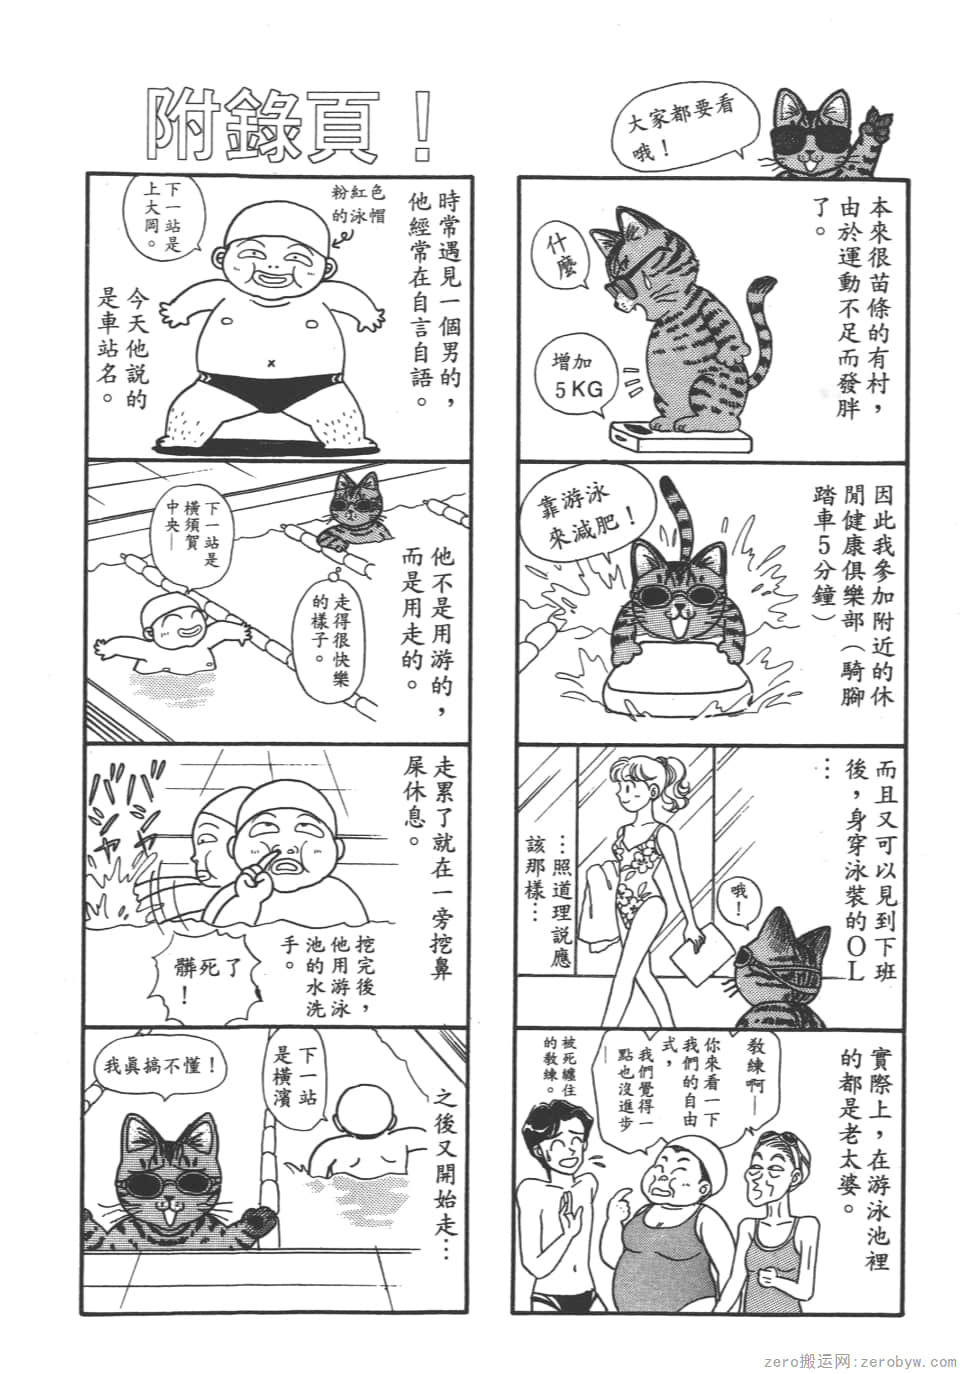 附錄頁！
大家都要看
哦！
本來很苗條的有村，
由於運動不足而發胖
了。
什麼
增加
5KG
因此我參加附近的休
閒健康俱樂部（騎腳
踏車5分鐘）
靠游泳
來減肥！
而且又可以見到下班
後，身穿泳裝的OL
…
…照道理說應
該那樣…
哦！
實際上，在游泳池裡
的都是老太婆。
教練啊—
你來看一下
我們的自由
式，
我們覺得一
點也沒進步
—
被死纏住
的教練。
時常遇見一個男的，
他經常在自言自語。
粉紅色
的泳帽
下一站是
上大岡。
今天他說的
是車站名。
他不是用游的，
而是用走的。
下一站是
橫須賀
中央—
走得很快樂
的樣子。
走累了就在一旁挖鼻
屎休息。
挖完後，
他用游泳
池的水洗
手。
髒死了
！
之後又開始走…
下一站
是橫濱
我真搞不懂！
zero搬运网:zerobyw.com